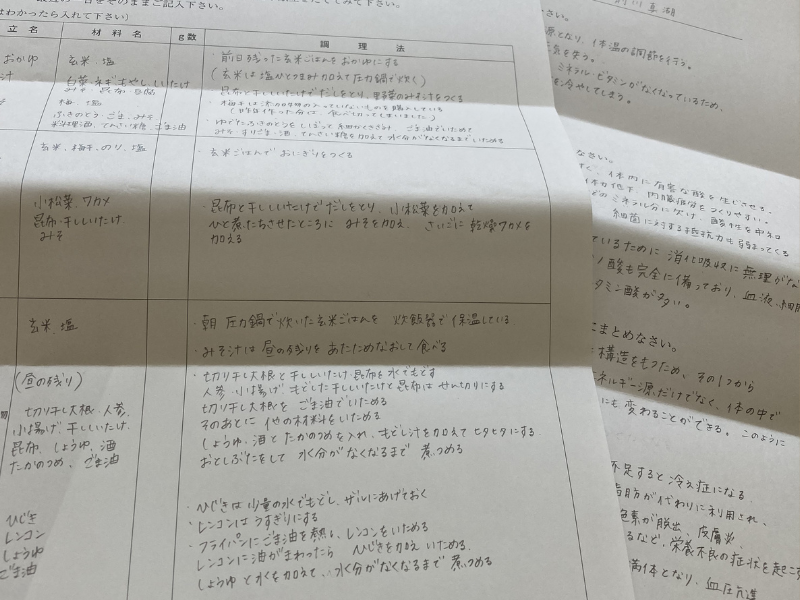 そのままご記入下さい。
はわかったら入れて下さい)
立名 材料名 g数 調理法
おかゆ 玄米・塩 ・前日残った玄米ごはんをおかゆにする
(玄米は塩ひとつまみ加えて圧力鍋で炊く)
汁 白菜・ネギ・もやし・しいたけ
みそ・昆布・
・昆布と干ししいたけでだしをとり、野菜のみそ汁をつくる
梅・塩
ふきのとう・ごま・みそ
料理酒・てんさい糖・ごま油
・ゆでたふきのとうをしぼって細かくきざみ ごま油でいためて
みそ・すりごま・酒・てんさい糖を加えて水分がなくなるまでいためる
玄米・梅干・のり・塩 ・玄米ごはんでおにぎりをつくる
小松菜・ワカメ
昆布・干ししいたけ
みそ
・昆布と干ししいたけでだしをとり、小松菜を加えて
ひと煮たちさせたところに みそを加え、さいごに 乾燥ワカメを
加える
玄米・塩 ・朝 圧力鍋で炊いた玄米ごはんを 炊飯器で保温している
・みそ汁は昼の残りを あたためなおして食べる
(昼の残り)
切り干し大根・人参・
小揚げ・干ししいたけ・
昆布・しょうゆ・酒
たかのつめ・ごま油
・切り干し大根と干ししいたけ・昆布を水でもどす
人参・小揚げ・もどした干ししいたけと昆布は せん切りにする
切り干し大根を ごま油でいためる
そのあとに 他の材料をいためる
しょうゆ・酒とたかのつめを入れ、もどし汁を加えて ヒタヒタにする
おとしぶたをして 水分がなくなるまで 煮つめる
ひじき
レンコン
しょうゆ
ごま油
・ひじきは少量の水でもどし、ザルにあげておく
・レンコンはうすぎりにする
・フライパンにごま油を熱し、レンコンをいためる
レンコンに油がまわったら ひじきを加え いためる
しょうゆと水を加えて、水分がなくなるまで 煮つめる
源となり、体温の調節を行う。
ミネラル・ビタミンがなくなっているため、
を冷やしてしまう。
なさい。
く、体内に有害な酸を生じさせる。
体力低下、内臓疲労をつくりやすい。
どのミネラル分に欠け、酸性を中和
細菌に対する抵抗力も弱まってくる
ているために 消化吸収に無理がな
ノ酸も完全に備っており、血液、細胞
タミン酸が多い。
にまとめなさい。
構造をもつため、その1つから
ネルギー源だけでなく、体の中で
にも変わることができる。このように
不足すると冷え症になる。
脂肪が代わりに利用され、
色素が脱出、皮膚炎
るなど、栄養不良の症状を起こす
満体となり、血圧亢進